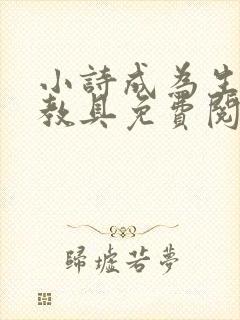 小詩成為生
教具免費閱
歸墟若夢